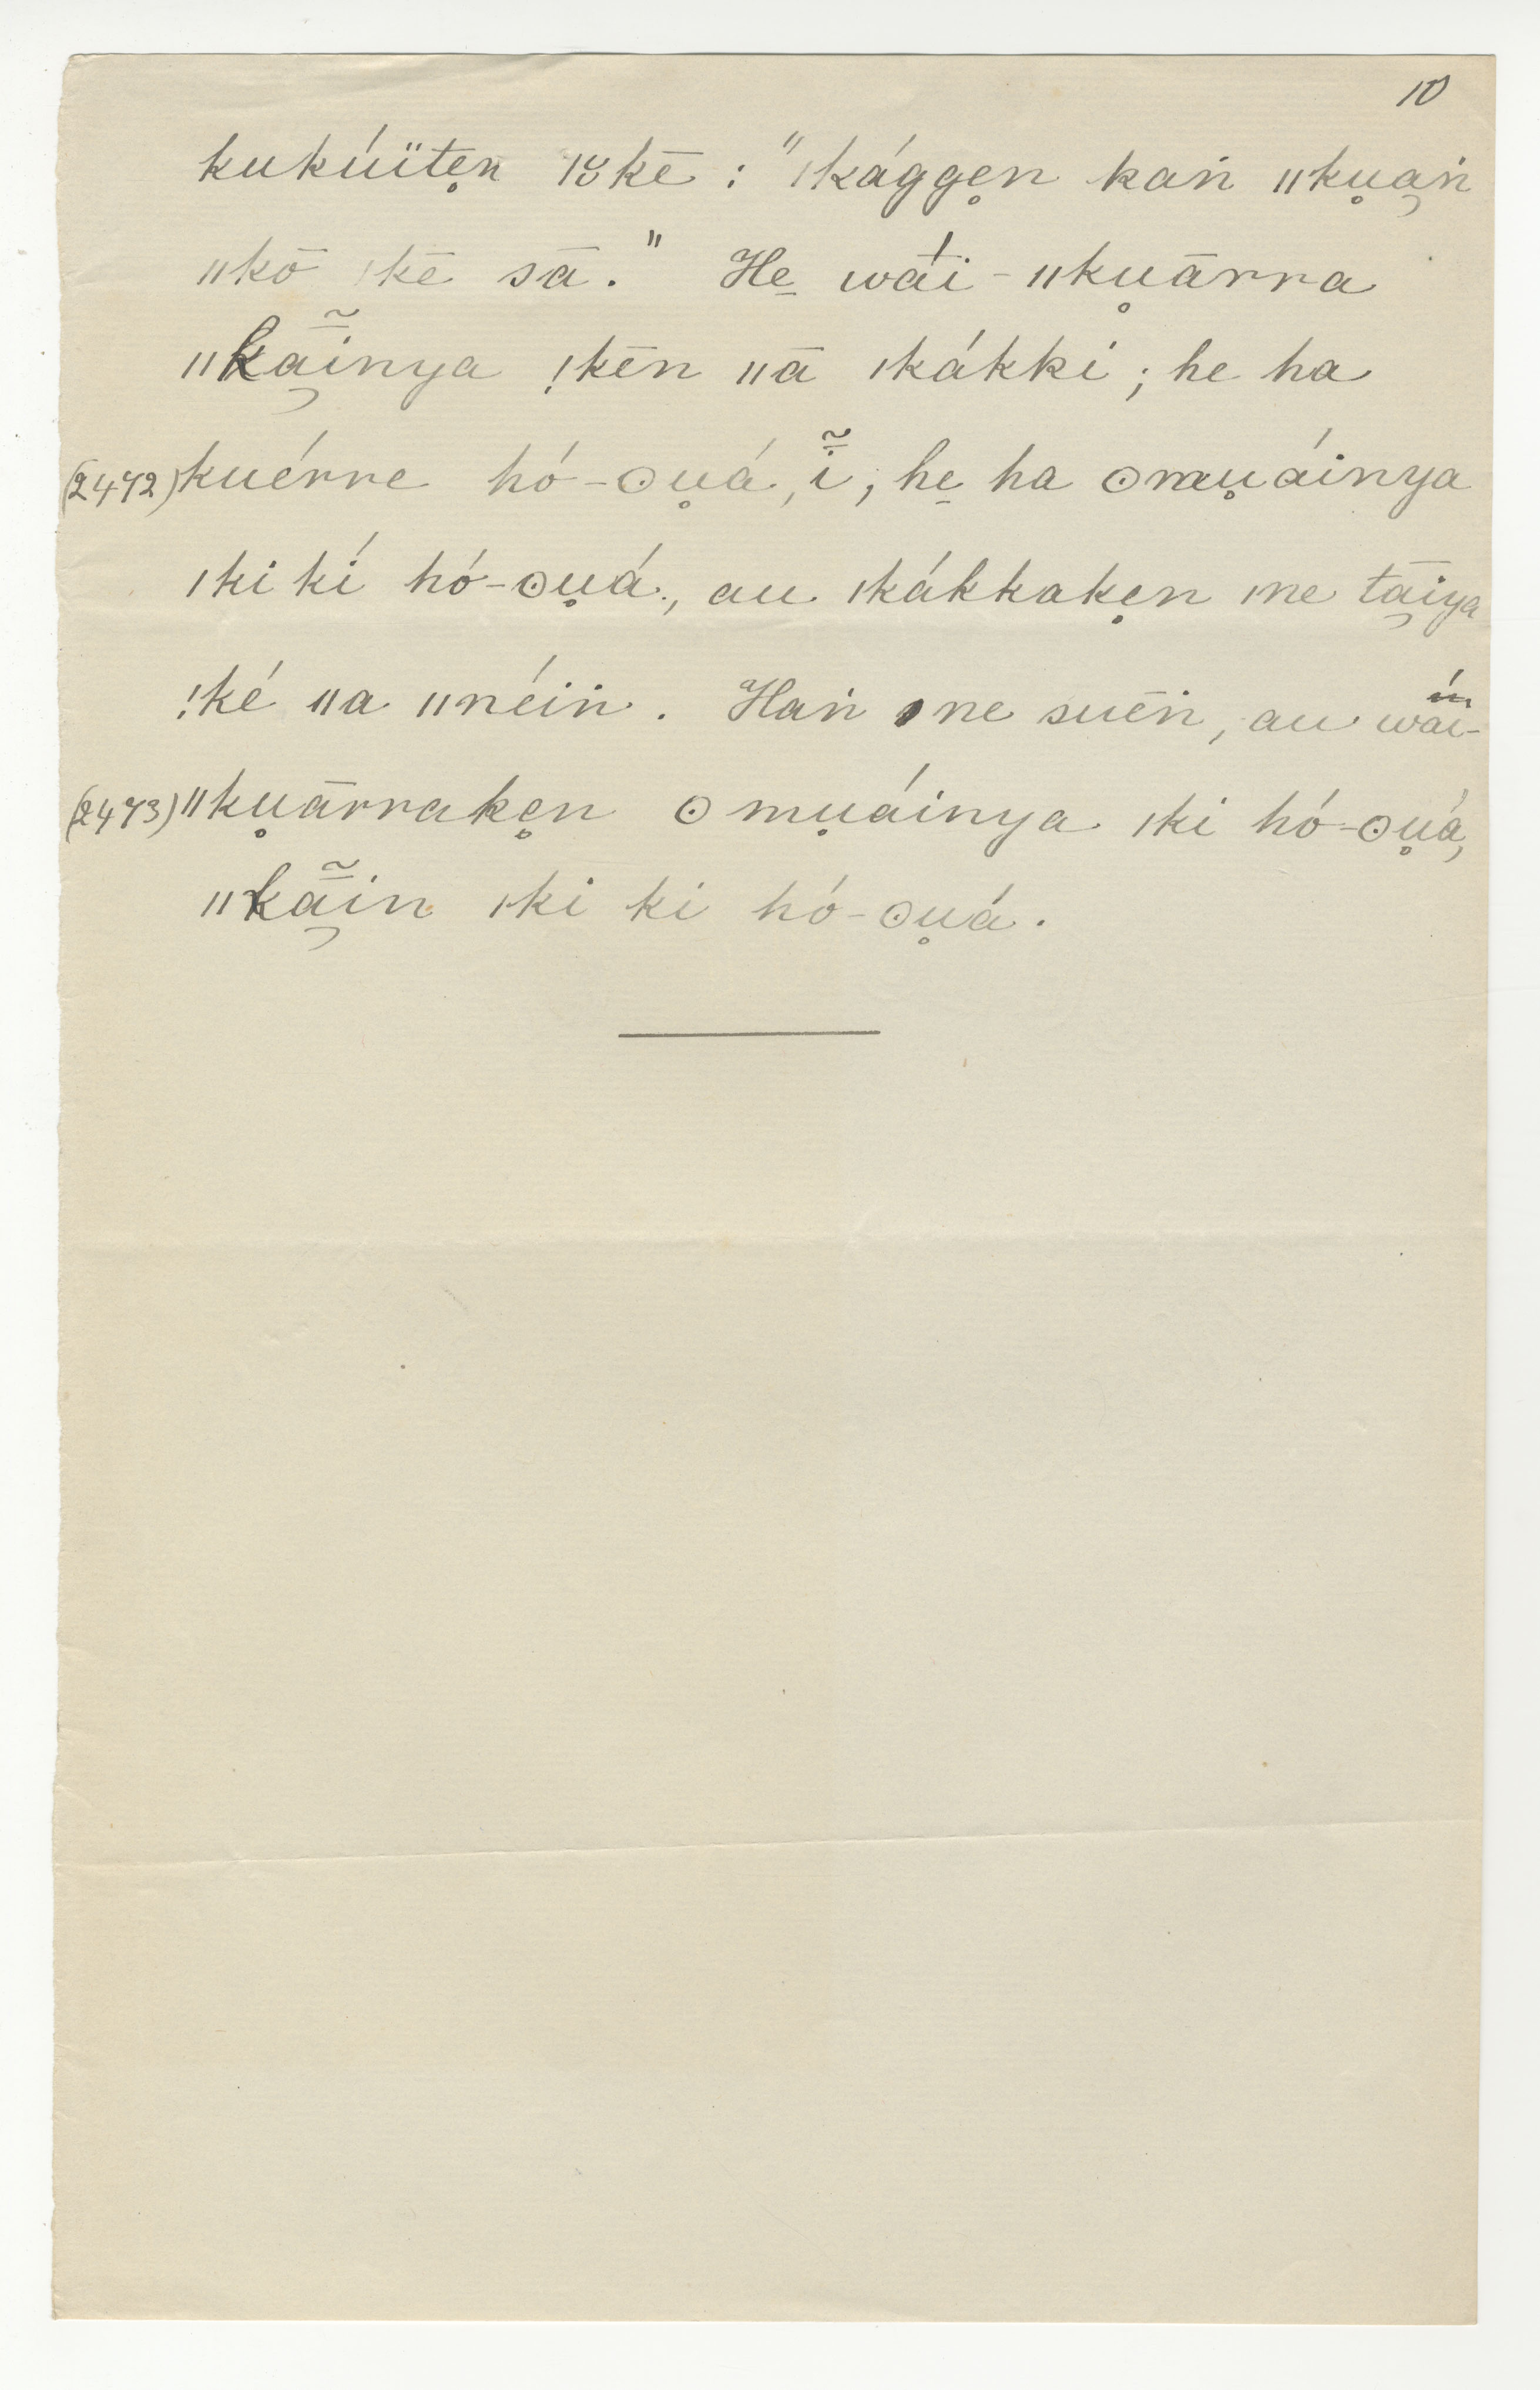 10
kukúïte̥n ǀɣ̆kē : "ǀkágge̥n kaṅ ǁku̥a̢ṅ
ǁkō ǀkē sā." He̱ wā́i-ǁku̥ārra
ǁkā̢̃inya !kēn ǁā ǀkákki; he ha
(2472) kuérre hó-ʘu̥á, ī̃; he̱ ha ʘmu̥áinya
ǀki kí hó-ʘu̥á, au ǀkákkake̥n ǀne tā̢iya
!ké ǁa ǁnéiṅ. Haṅ ǀne suēn, au wāí-
(2473) ǁku̥ārrake̥n ʘmu̥áinya ǀki hó-ʘu̥á,
ǁkā̢̃in ǀki ki hó-ʘu̥á.